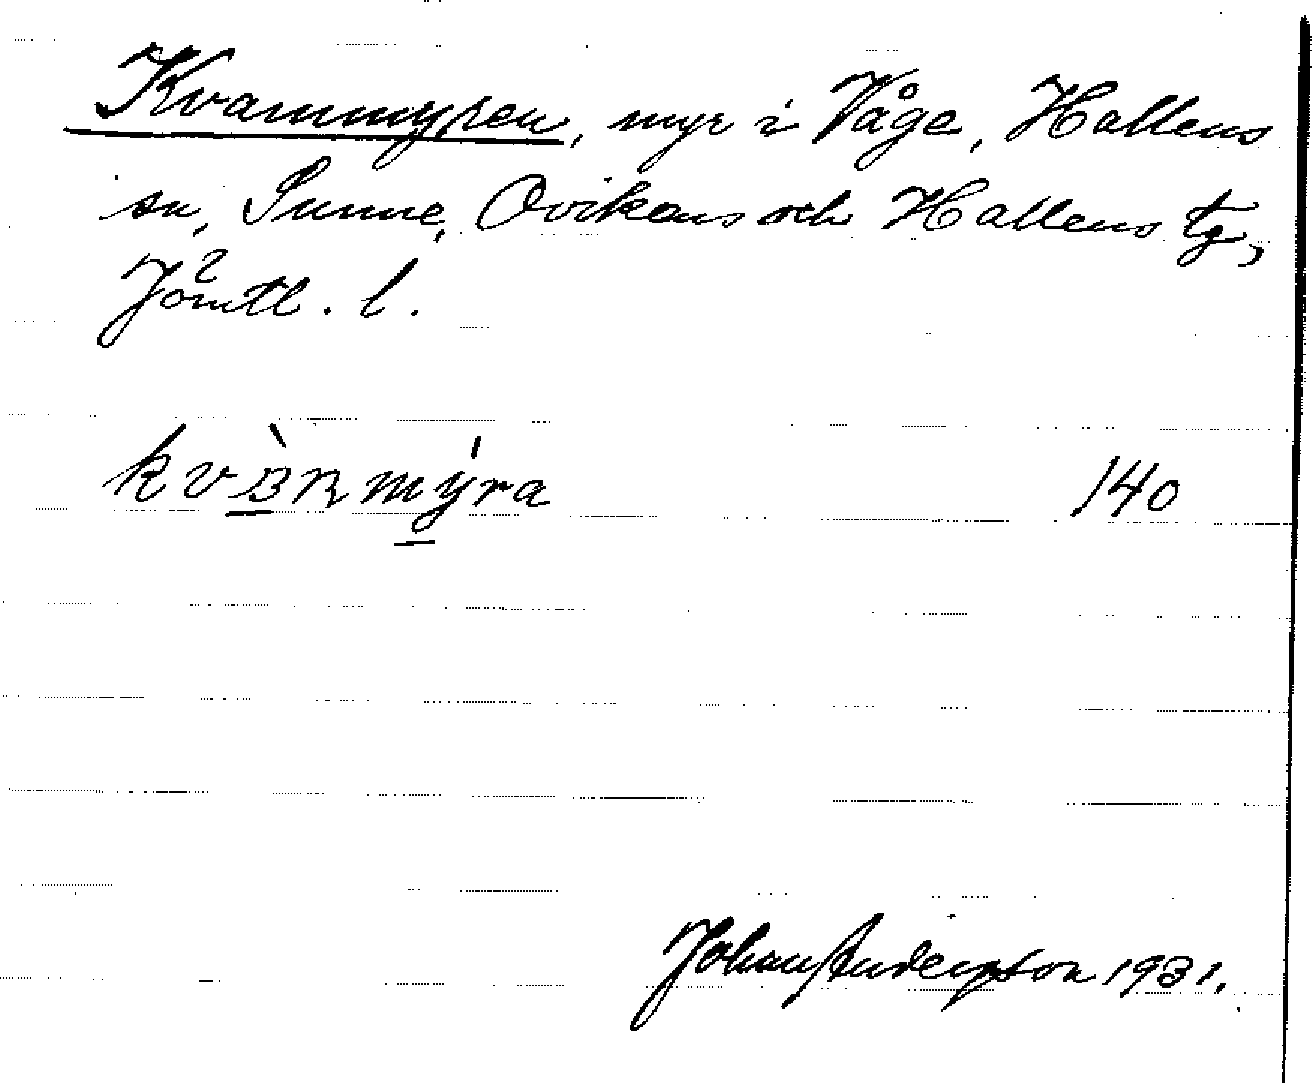 Kvarnmyren, myr i Våge, Hallens
sn, Sunne, Ovikens och Hallens tg,
Jämtl. l.
140
Johan Anderßon 1931.